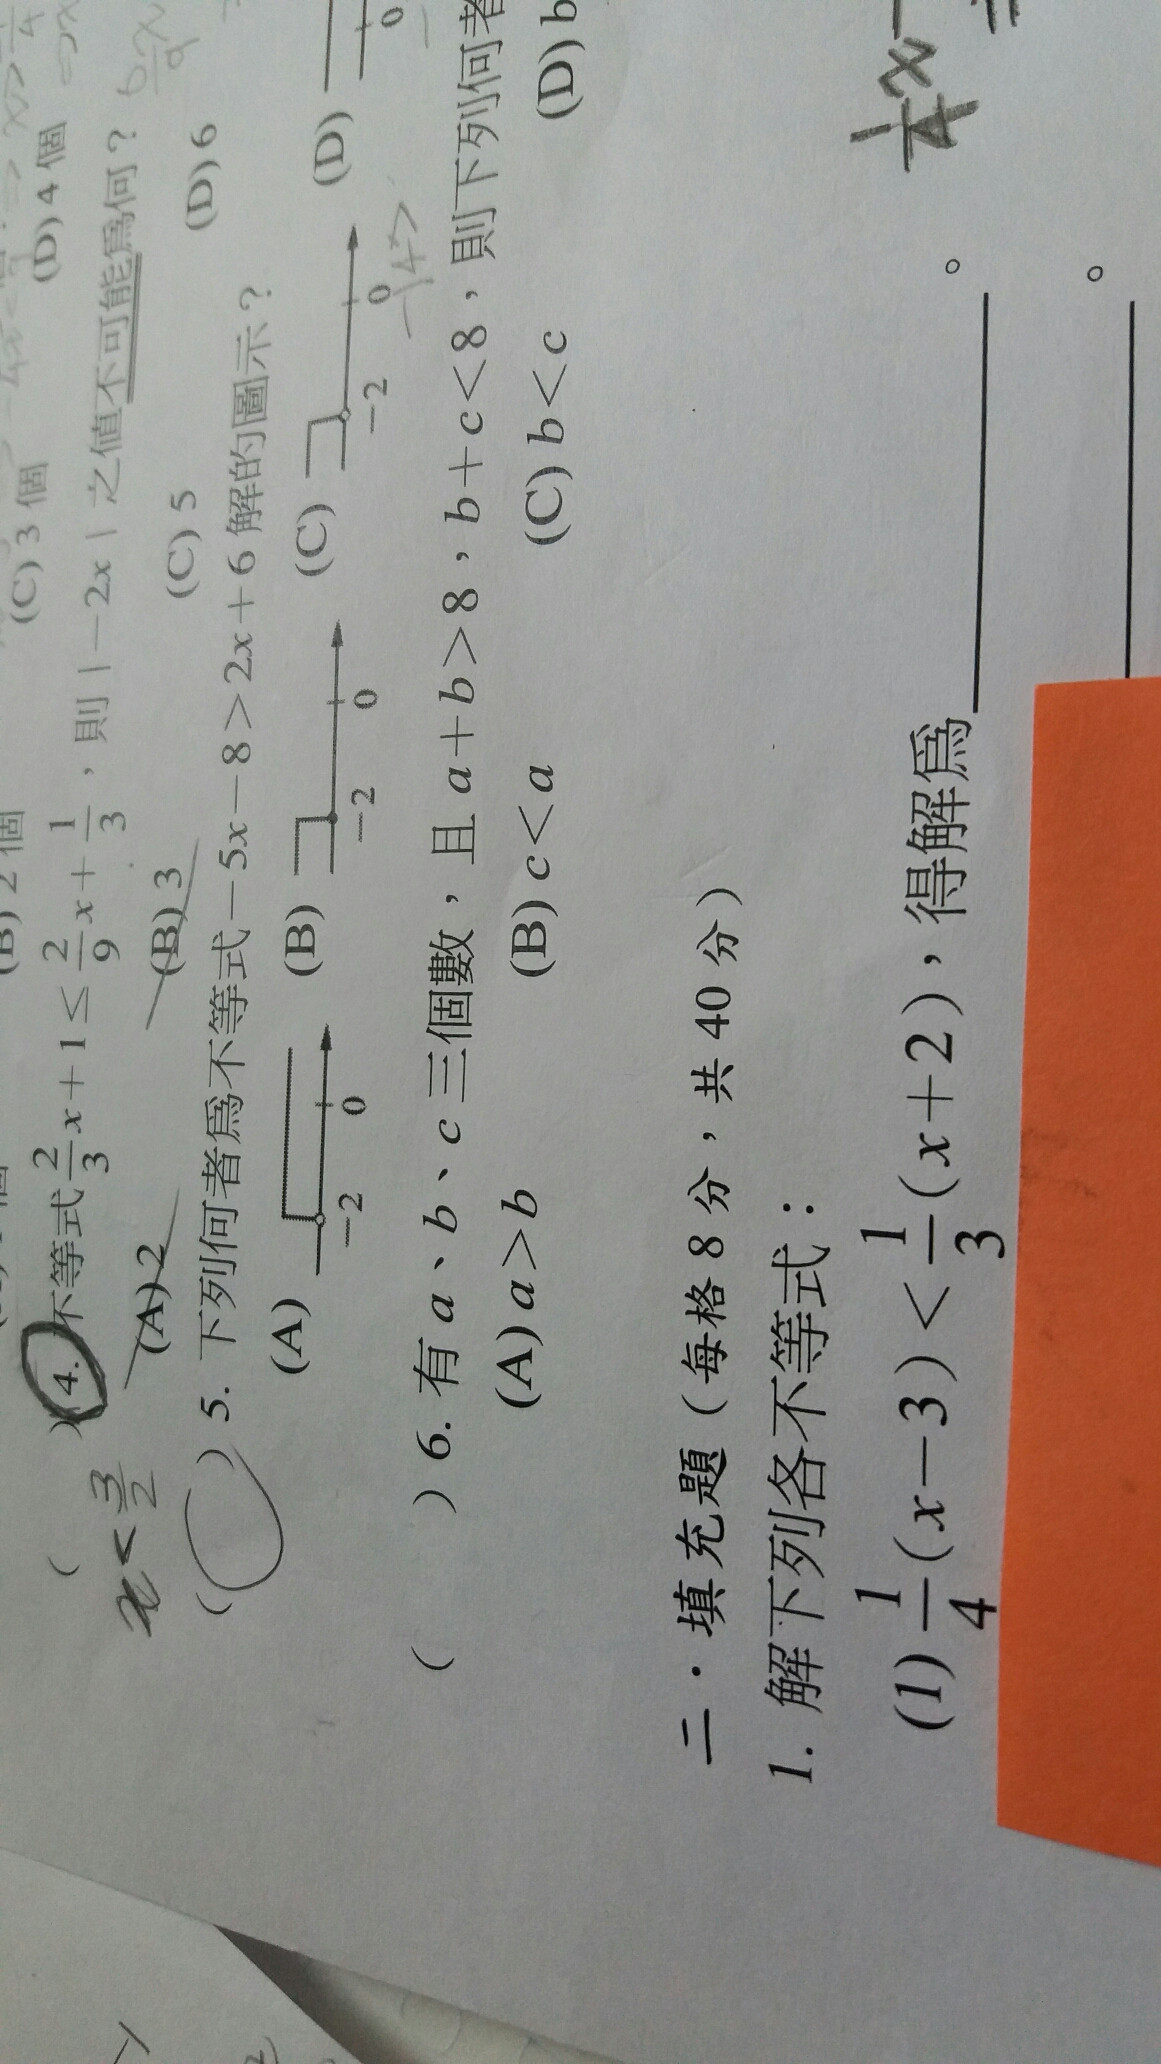 (B) 2 個 (C) 3 個 (D) 4 個
( ) 4. 不等式 2/3 x + 1 ≤ 2/9 x + 1/3 ,則 | -2x | 之值不可能為何?
x < 3/2
(A) 2 (B) 3 (C) 5 (D) 6
( ) 5. 下列何者為不等式 -5x - 8 > 2x + 6 解的圖示?
(A) (B) (C) (D)
-2 0 -2 0 -2 0
( ) 6. 有 a、b、c 三個數,且 a + b > 8,b + c < 8,則下列何者
(A) a > b (B) c < a (C) b < c (D) b
二.填充題(每格 8 分,共 40 分)
1. 解下列各不等式:
(1) 1/4 (x - 3) < 1/3 (x + 2),得解為 。 1/4 x -
。